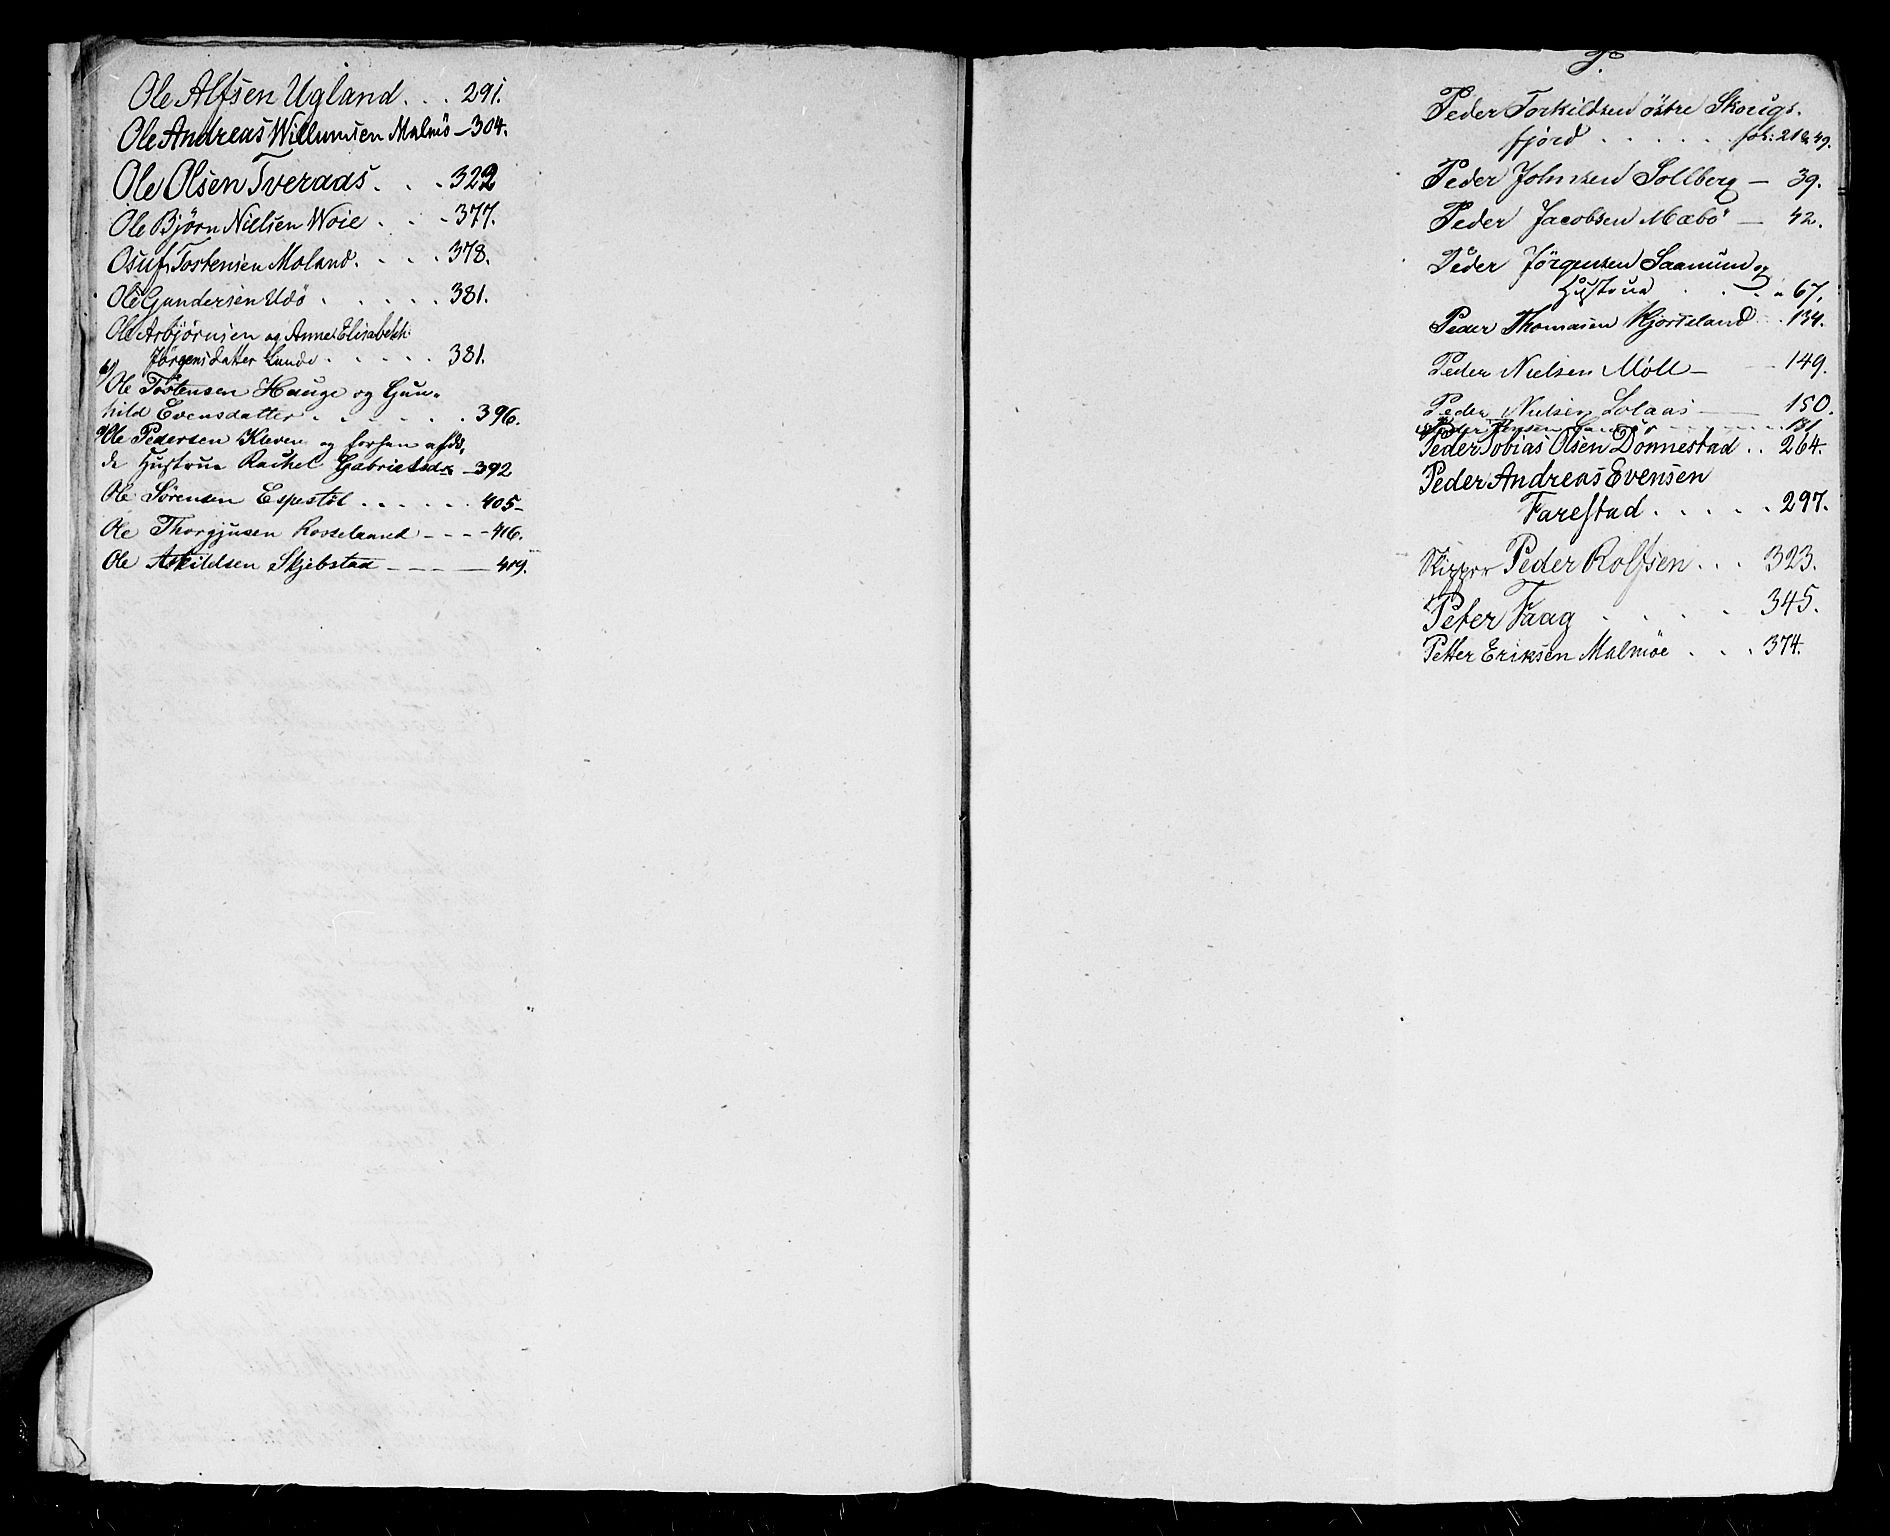 Ole Alfsen Ugland. . . 291.
Ole Andreas Willumsen Malmö — 304.
Ole Olsen Tveraas. . . 322
Ole Bjørn Nielsen Woie . . 377.
Osuf Tostensen Moland. . . . 378.
Ole Gundersen Udö . . . . . 381.
Ole Asbjørnsen og Anne Elisabeth
Jørgensdatter Lunde . . . . . 381.
Ole Tostensen Hauge og Gun-
hild Evensdatter . . . . . 396.
Ole Pedersen Kleven og forhen afdö
de Hustrue Rachel Gabrielsd — 392
Ole Sørensen Espestöl . . . . . . 405-
Ole Thorgjusen Rosseland - - - - 416.
Ole Askildsen Skjebstad - - - 419.
P.
Peder Torkildsen östre Skougs-
fjord . . . . . . fol: 21 & 49.
Peder Johnsen Sollberg — 39.
Peder Jacobsen Mæbö — 42.
Peder Jörgensen Saamund og
Hustrue . . . . 67.
Peder Thomasen Kjorteland . . 134.
Peder Nielsen Möll — 149.
Peder Nielsen Lolaas — 150.
Peder Jensen 181
Peder Tobias Olsen Dønnestad . . 264.
Peder Andreas Evensen
Farestad . . . . . 297.
Skipper Peder Rolfsen . . . 323.
Peter Faag . . . . 345.
Petter Eriksen Malmøe . . . 374.